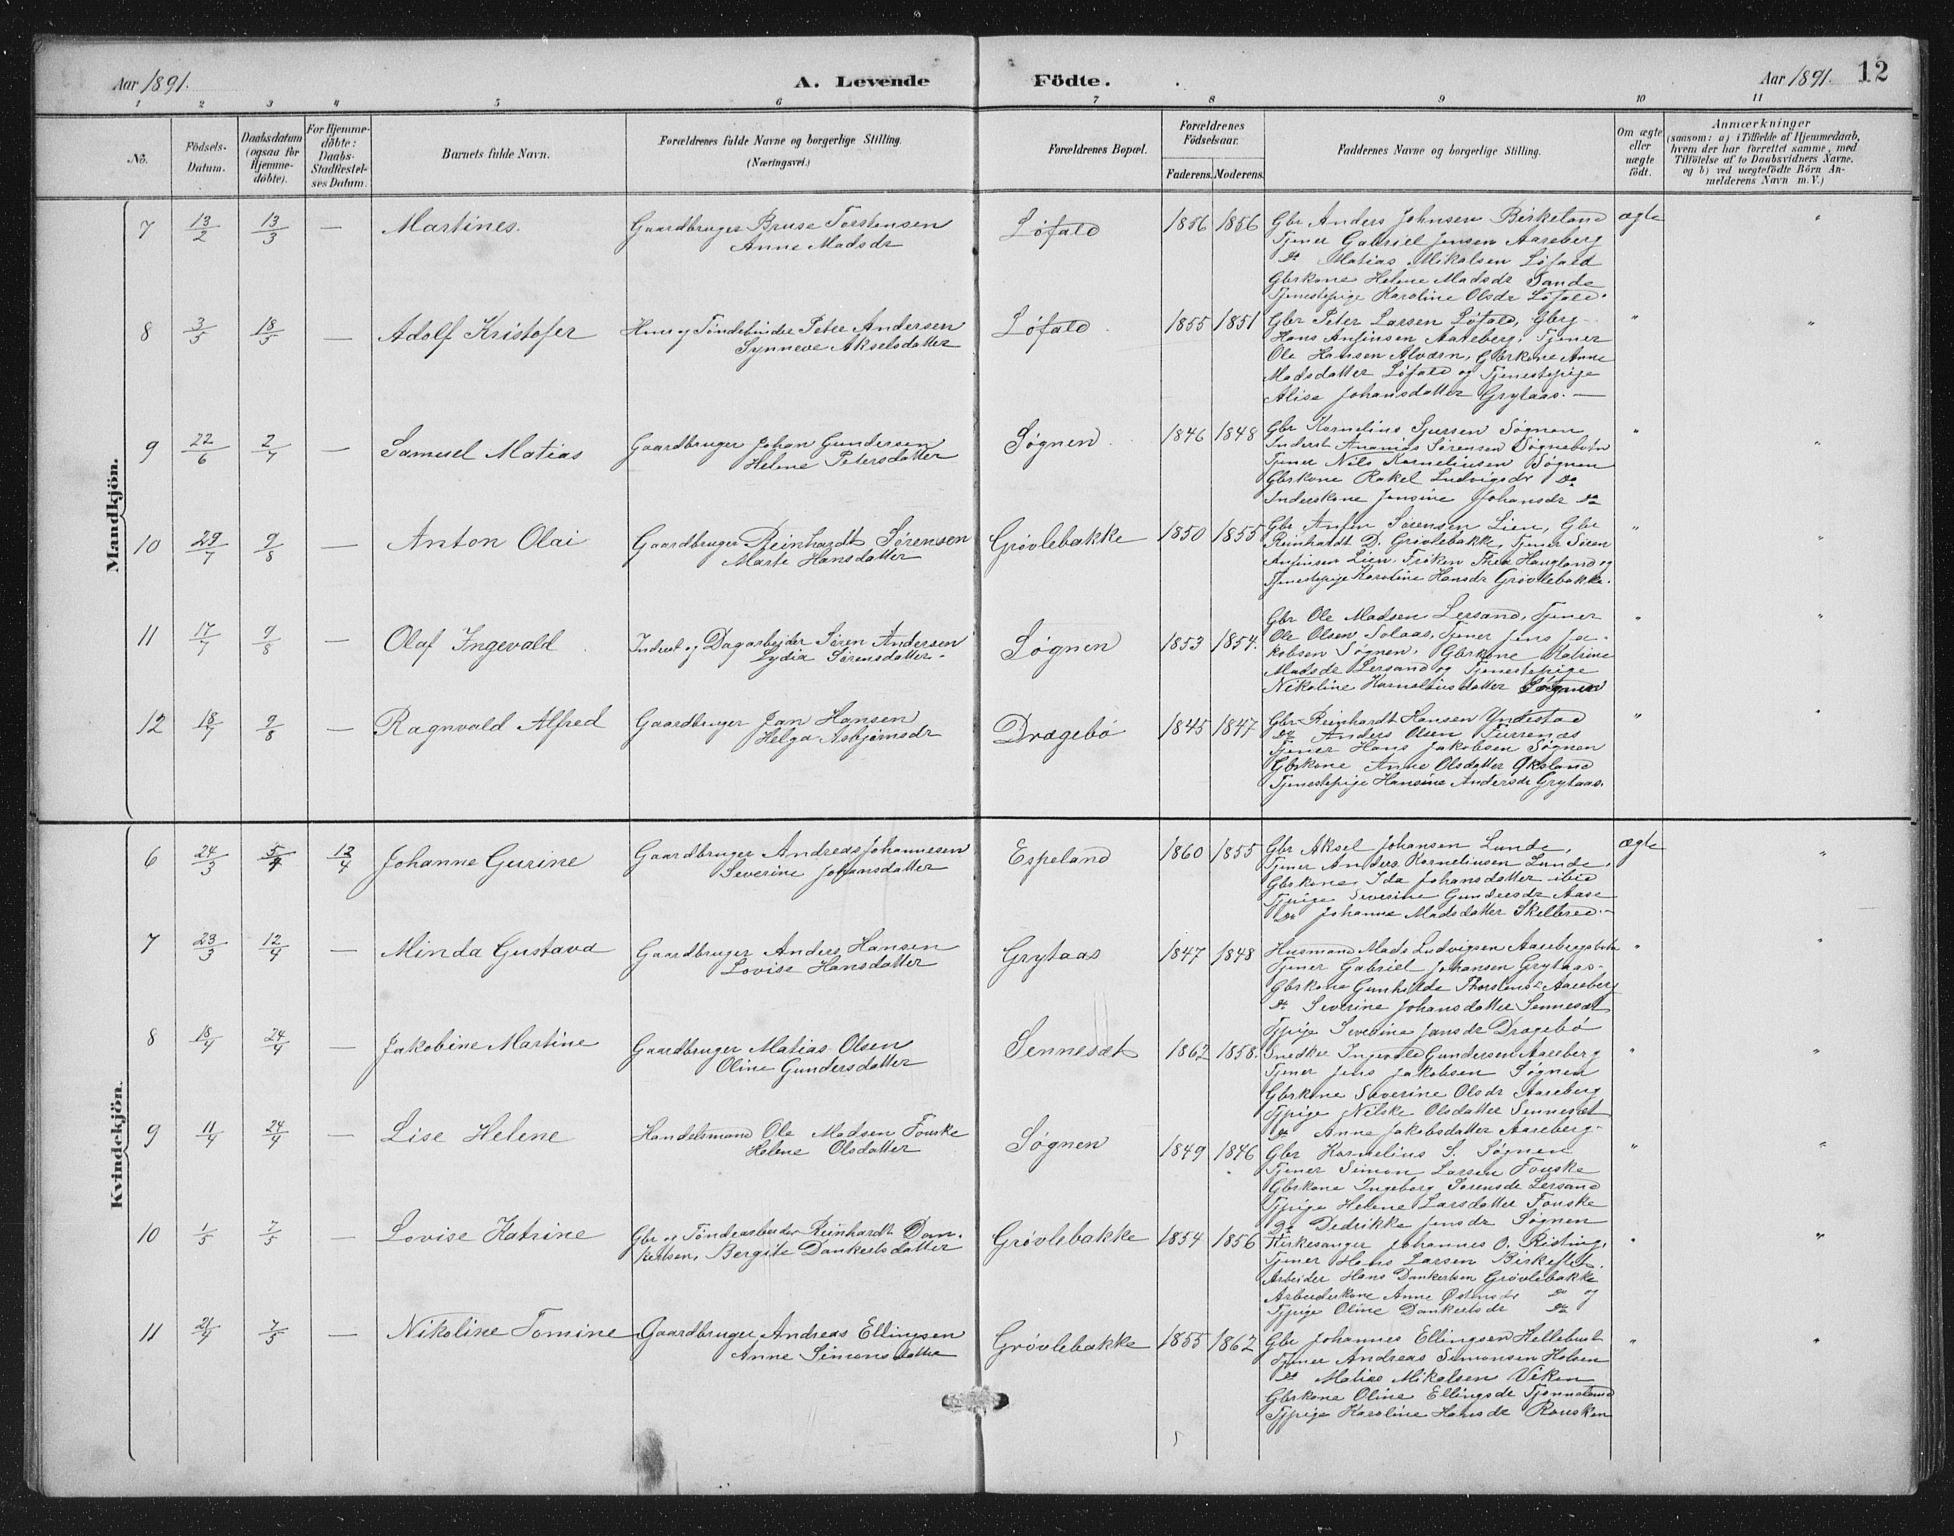 Aar 1891.
A. Levende Födte.
Aar 1891. 12
1 2 3 4 5 6 7 8 9 10 11
No.
Födsels-Datum.
Daabsdatum (ogsaa for Hjemme-döbte).
For Hjemme-döbte: Daabs-Stadfæstel-ses Datum.
Barnets fulde Navn.
Forældrenes fulde Navne og borgerlige Stilling. (Næringsvei.)
Forældrenes Bopæl.
Forældrenes Födselsaar.
Faderens. Moderens.
Faddernes Navne og borgerlige Stilling.
Om ægte eller uægte födt.
Anmærkninger
(saasom: a) i Tilfælde af Hjemmedaab, hvem der har forrettet samme, med Tilföielse af to Daabsvidners Navne, og b) ved uægtefödte Börn An-melderens Navn m. V.)
Mandkjön.
7 13/2 13/3 — Martines. Gaardbruger Bruse Torstensen
Anne Madsdr
Løfald 1856 1856
Gbr Anders Johnsen Birkeland
Tjener Gabriel Jensen Aareberg
Do Matias Mikalsen Løfald
Gbrkone Helene Madsdr Sande
Tjenestepige Karoline Olsdr Løfald.
ægte "
8 3/5 18/5 — Adolf Kristofer Hmd og Tøndebinder Peter Andersen
Synneve Akselsdatter
Løfald. 1855 1851
Gbr Peter Larsen Løfald, Gbrg
Hans Anfinsen Aareberg, Tjener
Ole Hansen Alværn, Gbrkone Anne
Madsdatter Løfald og Tjenestepige
Alise Johansdatter Grytaas. —
" "
9 22/6 2/7 — Samuel Matias Gaardbruger Johan Gundersen
Helene Petersdatter
Søgnen. 1846 1848
Gbr Kornelius Sjursen Søgnen
Inderst Ananias Sørensen Søgnebotn
Tjener Nils Korneliusen Søgnen
Gbrkone Rakel Ludvigsdr Do
Inderskone Jensine Johansdr Do
" "
10 29/7 9/8 — Anton Olai Gaardbruger Reinhardt Sørensen
Marte Hansdatter
Grøvlebakke 1850 1855
Gbr Anfin Sørensen Lien, Gbr
Reinhardt D. Grøvlebakke, Tjener Søren
Anfinsen Lien, Frøken Thea Haugland og
Tjenestepige Karoline Hansdr Grøvlebakke.
" "
11 17/7 9/8 — Olaf Ingevald Inderst og Dagarbejder Søren Andersen
Lydia Sørensdatter.
Søgnen 1853 1854.
Gbr Ole Madsen Lersand, Tjener
Ole Olsen Solaas, Tjener Jens Ja-
kobsen Søgnen, Gbrkone Katrine
Madsdr Lersand og Tjenestepige
Nikoline Korneliusdatter Søgnen
" "
12 18/7 9/8 Ragnvald Alfred Gaardbruger Jan Hansen
Helga Asbjørnsdr
Drægebø 1845 1847
Gbr Reinhardt Hansen Yndestad
Do Anders Olsen Furrenæs
Tjener Hans Jakobsen Søgnen
Gbrkone Anne Olsdatter Øksland
Tjenestepige Hansine Andersdr Grytaas.
" "
Kvindekjön.
6 24/3 5/4 12/4 Johanne Gurine Gaardbruger Andreas Johannesen
Severine Johansdatter
Espeland 1860 1855
Gbr Aksel Johansen Lunde,
Tjener Anders Korneliusen Lunde,
Gbrkone Ida Johansdatter ibid
Tjpige Severine Gundersdr Aase
Do Johanne Madsdatter Skilbred.
ægte "
7 23/3 12/4 — Minda Gustava Gaardbruger Anders Hansen
Lovise Hansdatter
Grytaas 1847 1848
Husmand Mads Ludvigsen Aarebergsbotn
Tjener Gabriel Johansen Grytaas
Gbrkone Gunhilde Thorstensdr Aareberg
Do Severine Johansdatter Sennesæt
Tjpige Severine Jansdr Drægebø
" "
8 18/4 24/4 — Jakobine Martine Gaardbruger Matias Olsen
Oline Gundersdatter
Sennesæt 1862 1858.
Snedker Ingevald Gundersen Aareberg
Tjener Jens Jakobsen Søgnen
Gbrkone Severine Olsdr Aareberg
Tjpige Nilske Olsdatter Sennesæt
Do Anne Jakobsdatter Aareberg.
" "
9 11/4 24/4 — Lise Helene Handelsmand Ole Madsen Fouske
Helene Olsdatter
Søgnen 1849 1846
Gbr Kornelius S. Søgnen
Tjener Simon Larsen Fouske
Gbrkone Ingeborg Sørensdr Lersand
Tjpige Helene Larsdatter Fouske
Do Dedrikke Jensdr Søgnen
" "
10 1/5 7/5 — Lovise Katrine Gbr og Tøndearbeider Reinhardt Dan-
kertsen, Bergite Dankertsdatter
Grøvlebakke 1854 1856
Kirkesanger Johannes O. Risting,
Tjener Hans Larsen Birkeflet.
Arbeider Hans Dankertsen Grøvlebakke
Arbeiderkone Anne Østensdr Do og
Tjpige Oline Dankertsdr Do
" "
11 21/4 7/5 — Nikoline Tomine Gaardbruger Andreas Ellingsen
Anne Simonsdatter
Grøvlebakke 1855 1862
Gbr Johannes Ellingsen Hellebust
Tjener Andreas Simonsen Holsen
Do Matias Mikalsen Viken
Gbrkone Oline Ellingsdr Tjønneland
Tjpige Karoline Hansdr Rousken
" "